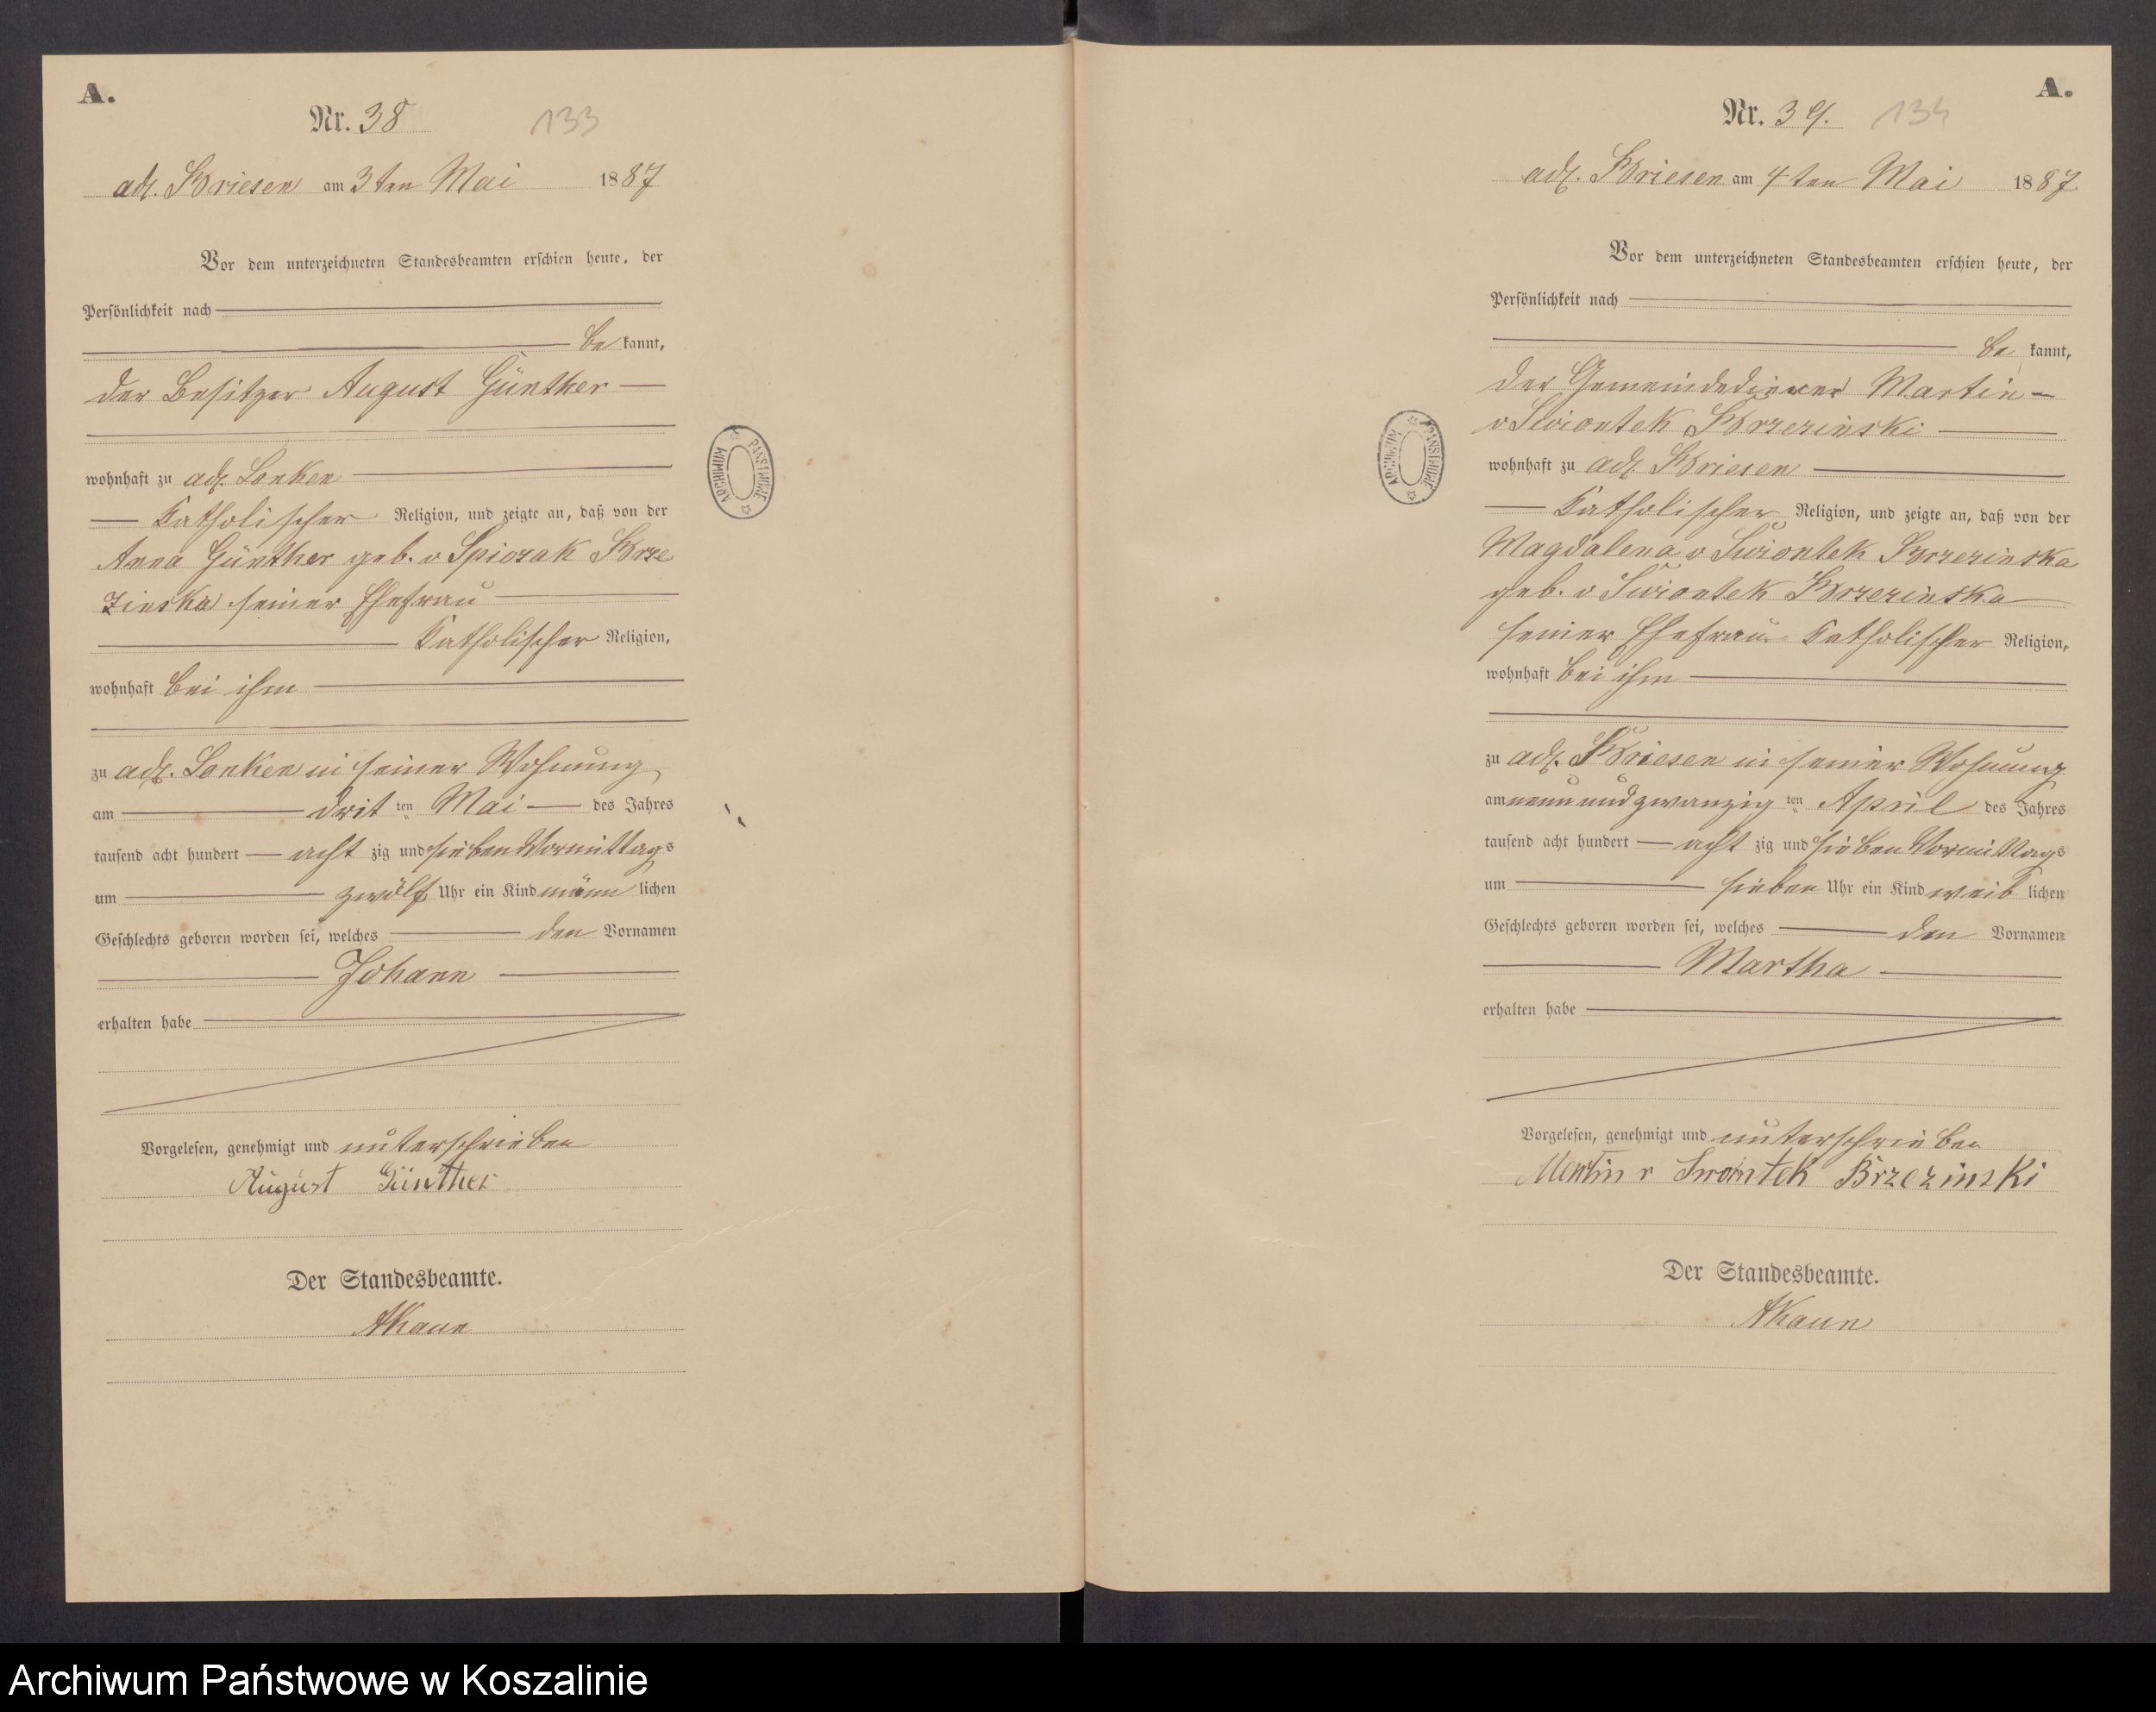 A.
Nr. 38 133
adl. Briesen am 3ten Mai 1887
Vor dem unterzeichneten Standesbeamten erschien heute, der
Persönlichkeit nach
be kannt,
der Besitzer August Günther
wohnhaft zu adl. Lonken
Katholischer Religion, und zeigte an, daß von der
Anna Günther geb. v Spiczak Brze
zinska seiner Ehefrau
Katholischer Religion,
wohnhaft bei ihm
zu adl. Lonken in seiner Wohnung
am drit ten Mai des Jahres
tausend acht hundert acht zig und sieben Vormittags
um zwölf Uhr ein Kind männ lichen
Geschlechts geboren worden sei, welches den Vornamen
Johann
erhalten habe
Vorgelesen, genehmigt und unterschrieben
August Günther
Der Standesbeamte.
AKaun
ARCHIWUM PAŃSTWOWE
A.
Nr. 39. 134
adl. Briesen am 4ten Mai 1887
Vor dem unterzeichneten Standesbeamten erschien heute, der
Persönlichkeit nach
be kannt,
der Gemeindediener Martin
v Swiontek Brzezinski
wohnhaft zu adl. Briesen
Katholischer Religion, und zeigte an, daß von der
Magdalena v Swiontek Brzezinska
geb. v Swiontek Brzezinska
seiner Ehefrau Katholischer Religion,
wohnhaft bei ihm
zu adl. Briesen in seiner Wohnung
am neun und zwanzig ten April des Jahres
tausend acht hundert acht zig und sieben Vormittags
um sieben Uhr ein Kind weib lichen
Geschlechts geboren worden sei, welches den Vornamen
Martha
erhalten habe
Vorgelesen, genehmigt und unterschrieben
Martin v Swontek Brzezinski
Der Standesbeamte.
AKaun
ARCHIWUM PAŃSTWOWE
Archiwum Państwowe w Koszalinie